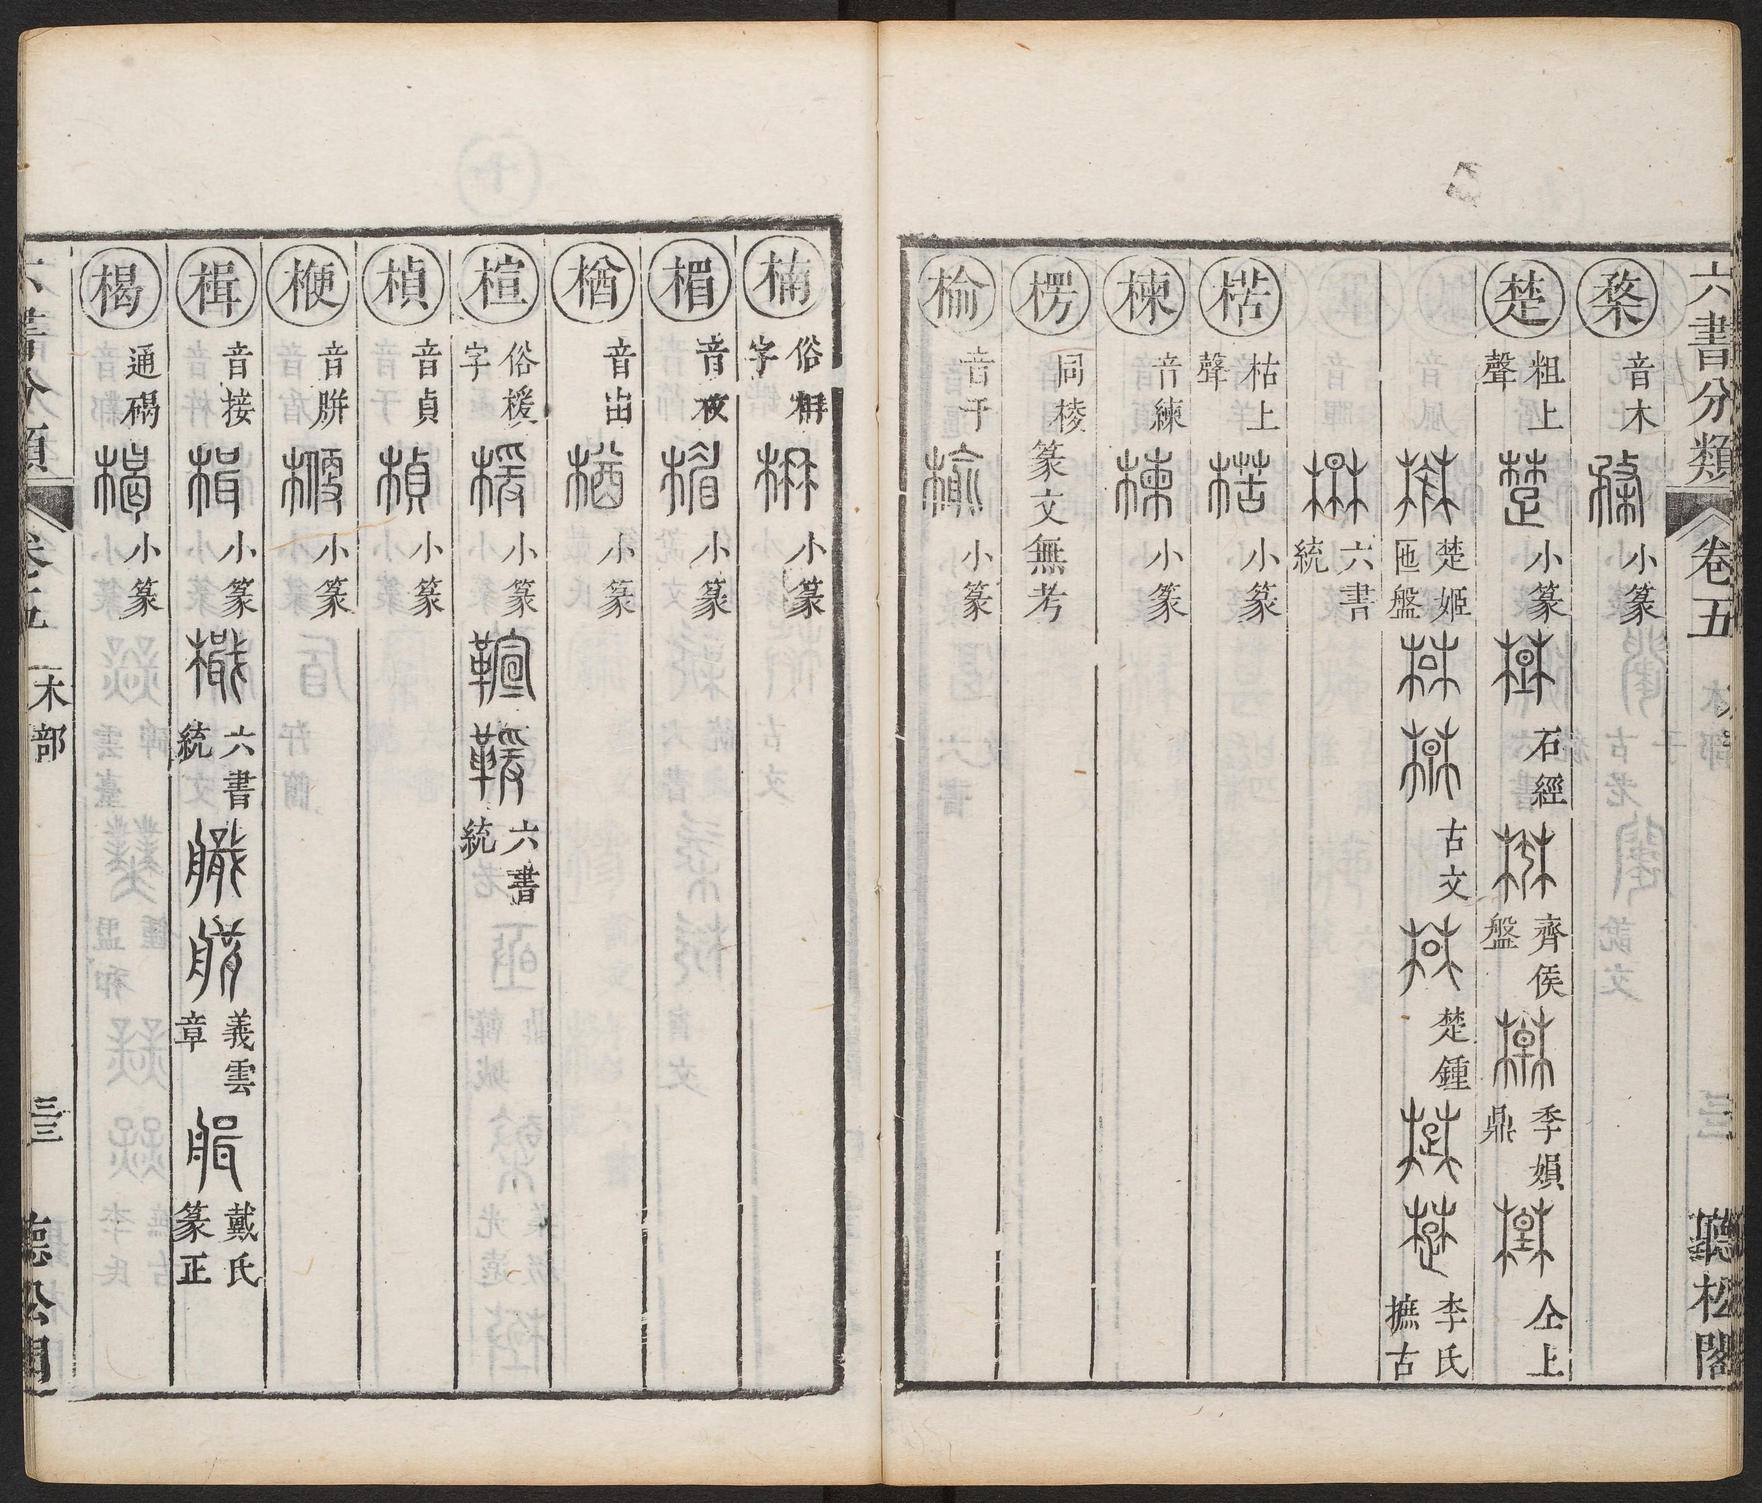 六書分類 卷五 木部 聽松閣
楘 音木 小篆
楚 粗上聲 小篆 石經 齊侯盤 季娟鼎 仝上
楚姬匜盤 古文 楚鍾 李氏摭古
六書統
楛 枯上聲 小篆
楝 音練 小篆
楞 同棱 篆文無考
榆 音于 小篆
楠 俗枏字 小篆
楣 音枚 小篆
楢 音由 小篆
楦 俗楥字 小篆 六書統
楨 音貞 小篆
楩 音胼 小篆
楫 音接 小篆 六書統 義雲章 戴氏篆正
楬 通碣 小篆
六書分類 卷五 木部 三三 聽松閣